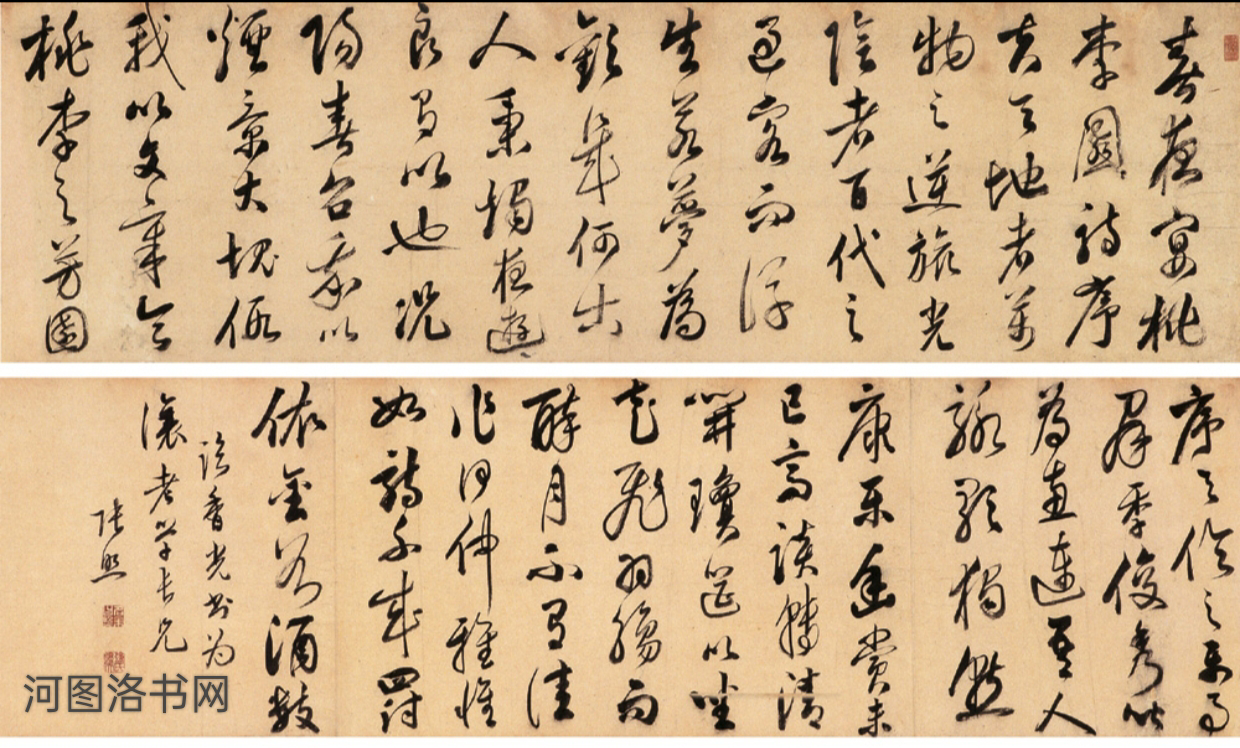 春夜宴桃
李園詩序
夫天地者萬
物之逆旅光
陰者百代之
過客而浮
生若夢為
歡幾何古
人秉燭夜遊
良有以也況
陽春召我以
煙景大塊假
我以文章會
桃李之芳園
序天倫之樂事
群季俊秀皆
為惠連吾人
詠歌獨慙
康樂幽賞未
已高談轉清
開瓊筵以坐
花飛羽觴而
醉月不有佳
作何伸雅懷
如詩不成罰
依金谷酒數
臨香光書為
瀼老學長兄
張照
河图洛书网